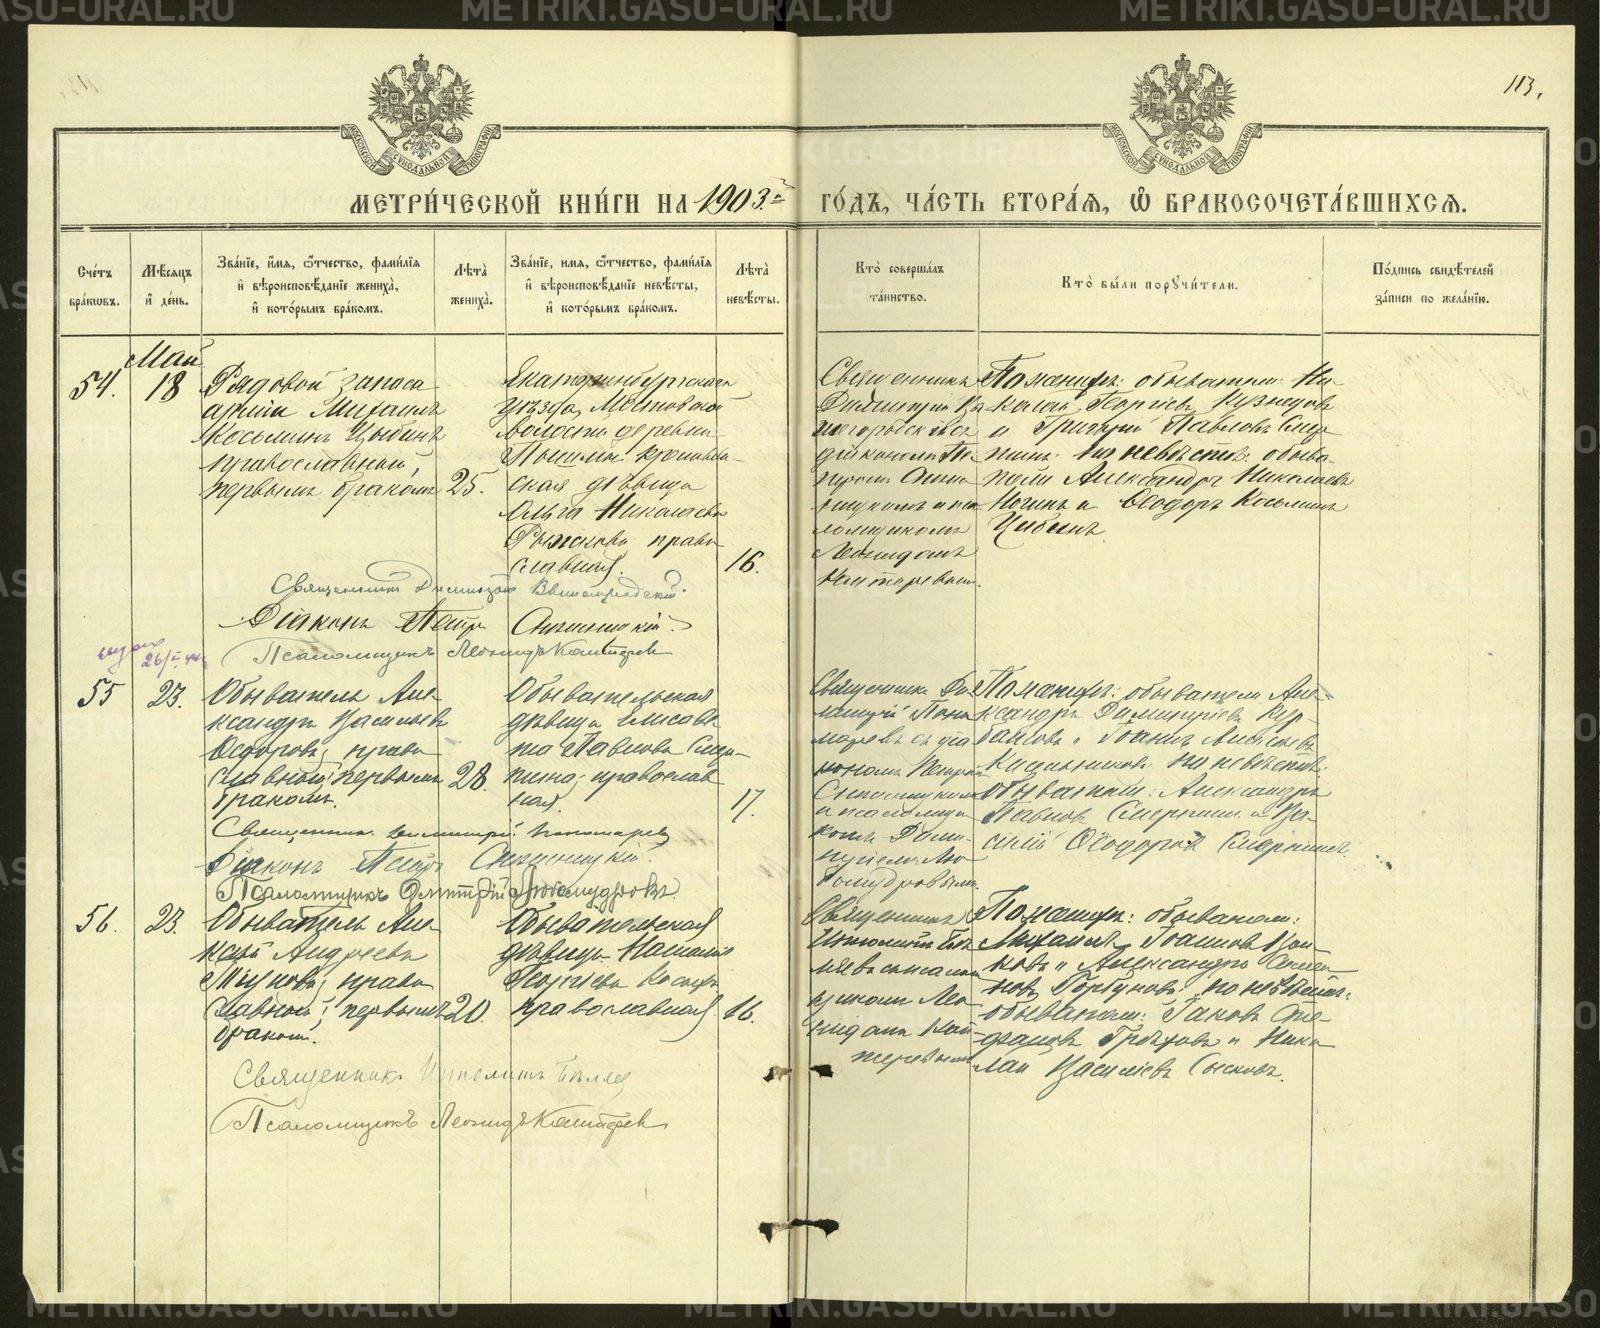 METRIKI.GASO-URAL.RU
113.
МОСКОВСКОЙ СѴНОДАЛЬНОЙ ТИПОГРАФІИ
МОСКОВСКОЙ СѴНОДАЛЬНОЙ ТИПОГРАФІИ
МЕТРИ́ЧЕСКОЙ КНИ́ГИ НА 1903 ГО́ДЪ, ЧА́СТЬ ВТОРА́Я, Ѡ БРАКОСОЧЕТА́ВШИХСЯ.
Сче́тъ бра́кѡвъ.
Мѣ́сяцъ и де́нь.
Зва́ніе, и́мя, ѻ́тчество, фами́лія и вѣроисповѣ́даніе жениха̀, и кото́рымъ бра́комъ.
Лѣта̀ жениха̀.
Зва́ніе, имя, ѻ́тчество, фами́лія и вѣроисповѣ́даніе невѣ́сты, и кото́рымъ бра́комъ.
Лѣта̀ невѣ́сты.
Кто̀ соверша́лъ та́инство.
Кто̀ бы́ли порꙋчи́тели.
По́дпись свидѣ́телей за́писи по жела́нію.
Май
54.
18
Рядовой запаса
арміи Михаилъ
Косьминъ Цыбинъ
православный,
первымъ бракомъ
25.
Екатеринбургскаго
уѣзда, Мостовской
волости деревни
Пышмы крестьян-
ская дѣвица
Ольга Николаева
Рыжкова право
славная.
16.
Священникъ
Димитрій Вы
шегородскій съ
діакономъ Пе
тромъ
псаломщикомъ
Леонидомъ
Кантеревымъ.
По женихѣ: обыватели: Ни
колай Георгіевъ Кузнецовъ
и Григорій Павловъ
по невѣстѣ: обыва
тели Александръ Николаевъ
и Ѳеодоръ Косьминъ
Цыбинъ.
Священникъ Димитрій Вышегородскій.
Діаконъ Петръ
Псаломщикъ Леонидъ Кантеревъ
26/I
55
23.
Обыватель Але
ксандръ Васильевъ
Ѳедоровъ, право
славный, первымъ
бракомъ.
28.
Обывательская
дѣвица Елисаве
та Павлова Смер
тина; православ
ная.
17.
Священникъ Ди
митрій Поно
маревъ съ діа
кономъ Петромъ
и псаломщи
комъ Дими
тріемъ Лю
бомудровымъ.
По женихѣ: обыватели Але
ксандръ Димитріевъ
и Іоаннъ
по невѣстѣ:
обыватели: Александръ
Павловъ Смертинъ и Ва
силій Ѳеодоровъ Смертинъ.
Священникъ Димитрій Пономаревъ
Діаконъ Петръ
Псаломщикъ Дмитрій Любомудровъ.
56.
23.
Обыватель
Андреевъ
право
славный, первымъ
бракомъ.
20.
Обывательская
дѣвица Наталія
Георгіева
православная
16.
Священникъ
Ипполитъ Бѣ
ляевъ съ псалом
щикомъ Лео
нидомъ Кан
теревымъ
По женихѣ: обыватели:
Михаилъ Іоанновъ
и Александръ
Горбуновъ; по невѣстѣ:
обыватели: Іаковъ Сте
фановъ Грѣховъ и Нико
лай Васильевъ Сысковъ.
Священникъ Ипполитъ Бѣляев
Псаломщикъ Леонидъ Кантеревъ